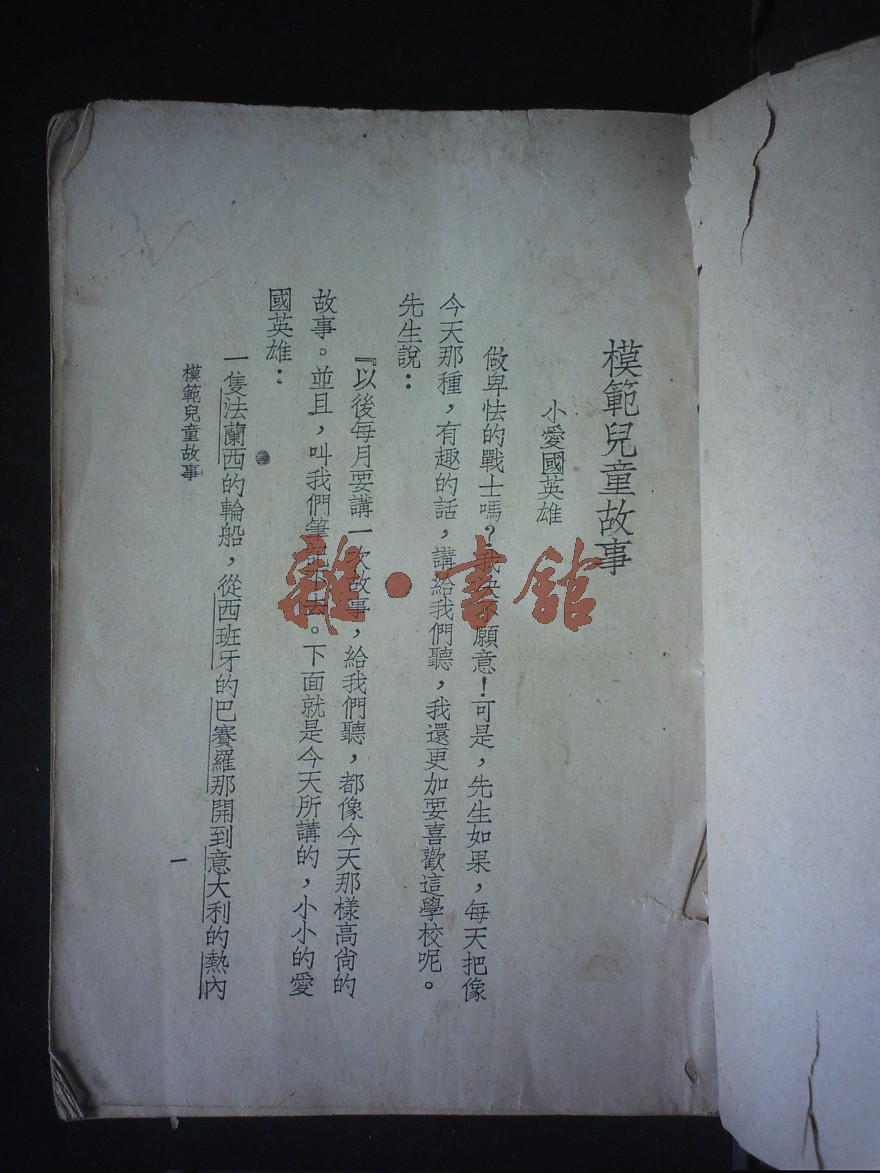 模範兒童故事
小愛國英雄
做卑怯的戰士嗎?我決不願意!可是,先生如果,每天把像
今天那種,有趣的話,講給我們聽,我還更加要喜歡這學校呢。
先生說:
『以後每月要講一次故事,給我們聽,都像今天那樣高尙的
故事。並且,叫我們筆記下去。下面就是今天所講的,小小的愛
國英雄:
一隻法蘭西的輪船,從西班牙的巴賽羅那開到意大利的熱內
模範兒童故事
一
雜·書館